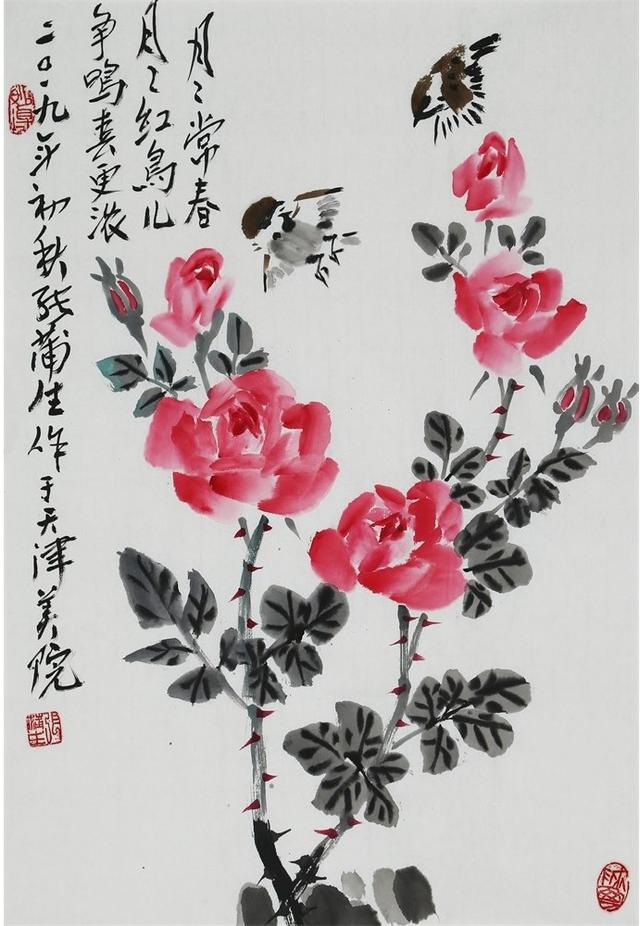 月〻常春
月〻红鸟儿
争鸣更浓
二〇一九年初秋张蒲生作于天津美院
张蒲生